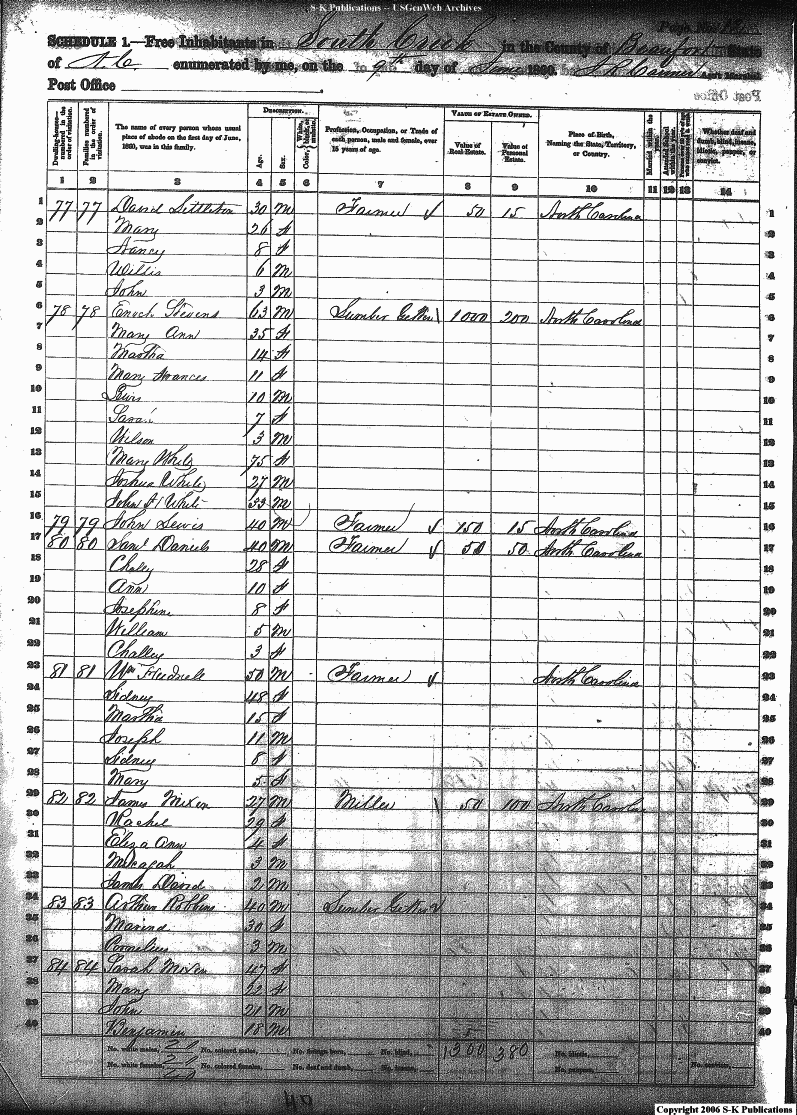 S-K Publications -- USGenWeb Archives
Page No.
SCHEDULE 1.—Free Inhabitants in South Creek in the County of Beaufort State
of N.C. enumerated by me, on the 9th day of June 1860. Ass't Marshal
Post Office
Dwelling-houses—numbered in the order of visitation.
Families numbered in the order of visitation.
The name of every person whose usual place of abode on the first day of June, 1860, was in this family.
DESCRIPTION.
Age.
Sex.
Color,
Profession, Occupation, or Trade of each person, male and female, over 15 years of age.
VALUE OF ESTATE OWNED.
Value of Real Estate.
Value of Personal Estate.
Place of Birth, Naming the State, Territory, or Country.
Married within the
Attended School
Whether deaf and dumb, blind, insane, idiotic, pauper, or convict.
1 2 3 4 5 6 7 8 9 10 11 12 13 14
1 77 77 David 30 M Farmer 50 15 North Carolina 1
2 Mary 26 f 2
3 Nancy 8 f 3
4 Willis 6 M 4
5 John 3 M 5
6 78 78 Enoch Stevens 63 M Lumber Getter 1000 200 North Carolina 6
7 Mary Ann 35 f 7
8 Martha 14 f 8
9 Mary Frances 11 f 9
10 Lewis 10 M 10
11 Sarah 7 f 11
12 Wilson 3 M 12
13 Mary White 75 f 13
14 Joshua White 27 M 14
15 John White 33 M 15
16 79 79 John Lewis 40 M Farmer 150 15 North Carolina 16
17 80 80 Saml Daniels 40 M Farmer 50 50 North Carolina 17
18 28 f 18
19 Ann 10 f 19
20 Josephine 8 f 20
21 William 5 M 21
22 Challey 3 f 22
23 81 81 Wm 50 M Farmer North Carolina 23
24 Sidney 48 f 24
25 Martha 15 f 25
26 Joseph 11 M 26
27 Sidney 8 f 27
28 Mary 5 f 28
29 82 82 James Mixon 27 M Miller 50 100 North Carolina 29
30 Rachel 29 f 30
31 Eliza Ann 4 f 31
32 Micagah 3 M 32
33 James David 2 M 33
34 83 83 Arthur Robbins 40 M Lumber Getter 34
35 Marina 30 f 35
36 Cornelius 3 M 36
37 84 84 Sarah Mixon 47 f 37
38 Mary 22 f 38
39 John 21 M 39
40 Benjamin 18 M 40
No. white males, No. colored males, No. foreign born, No. blind, 1300 380 No. idiotic,
No. white females, No. colored females, No. deaf and dumb, No. insane, No. paupers, No. convicts,
40
Copyright 2006 S-K Publications